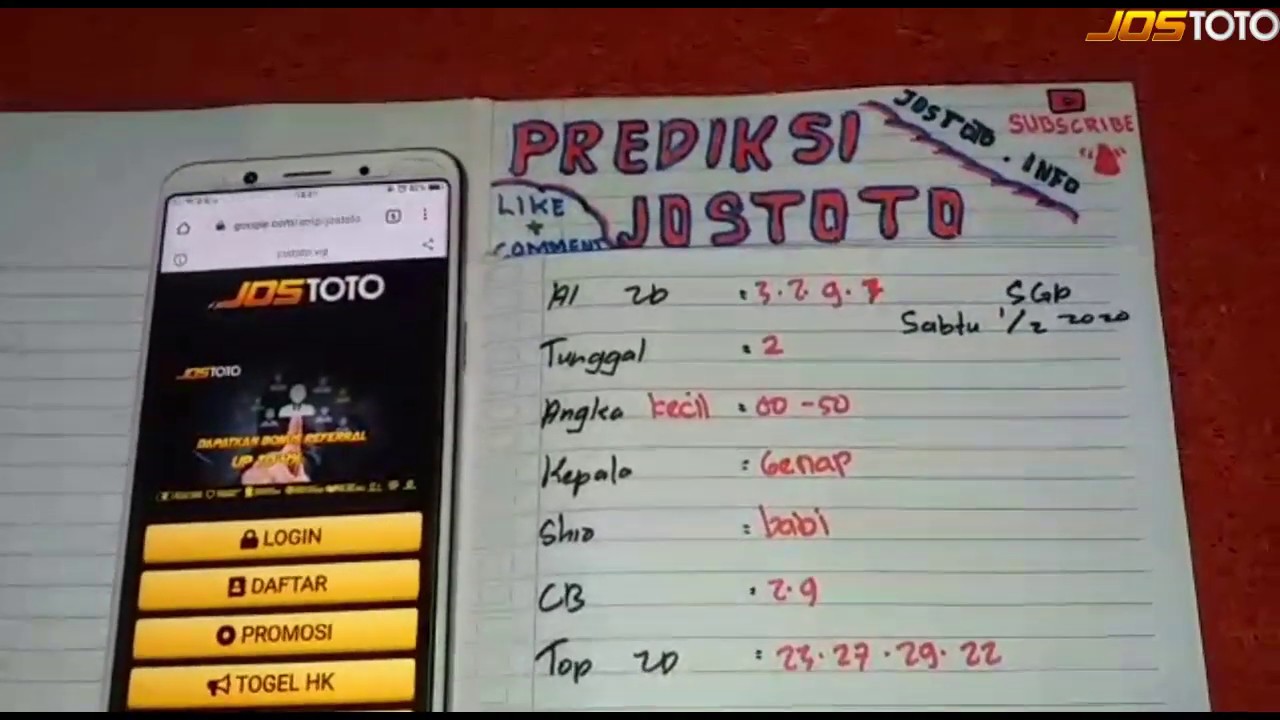 JOSTOTO
PREDIKSI
JOSTOTO
JOSTOTO . INFO
SUBSCRIBE
LIKE
+
COMMENT
AI 2D : 3.2.9.7
SGP
Sabtu 1/2 2020
Tunggal : 2
Angka kecil : 00 - 50
Kepala : Genap
Shio : babi
CB : 2.9
Top 2D : 23.27.29.22
JOSTOTO
JOSTOTO
DAPATKAN BONUS REFERRAL
LOGIN
DAFTAR
PROMOSI
TOGEL HK